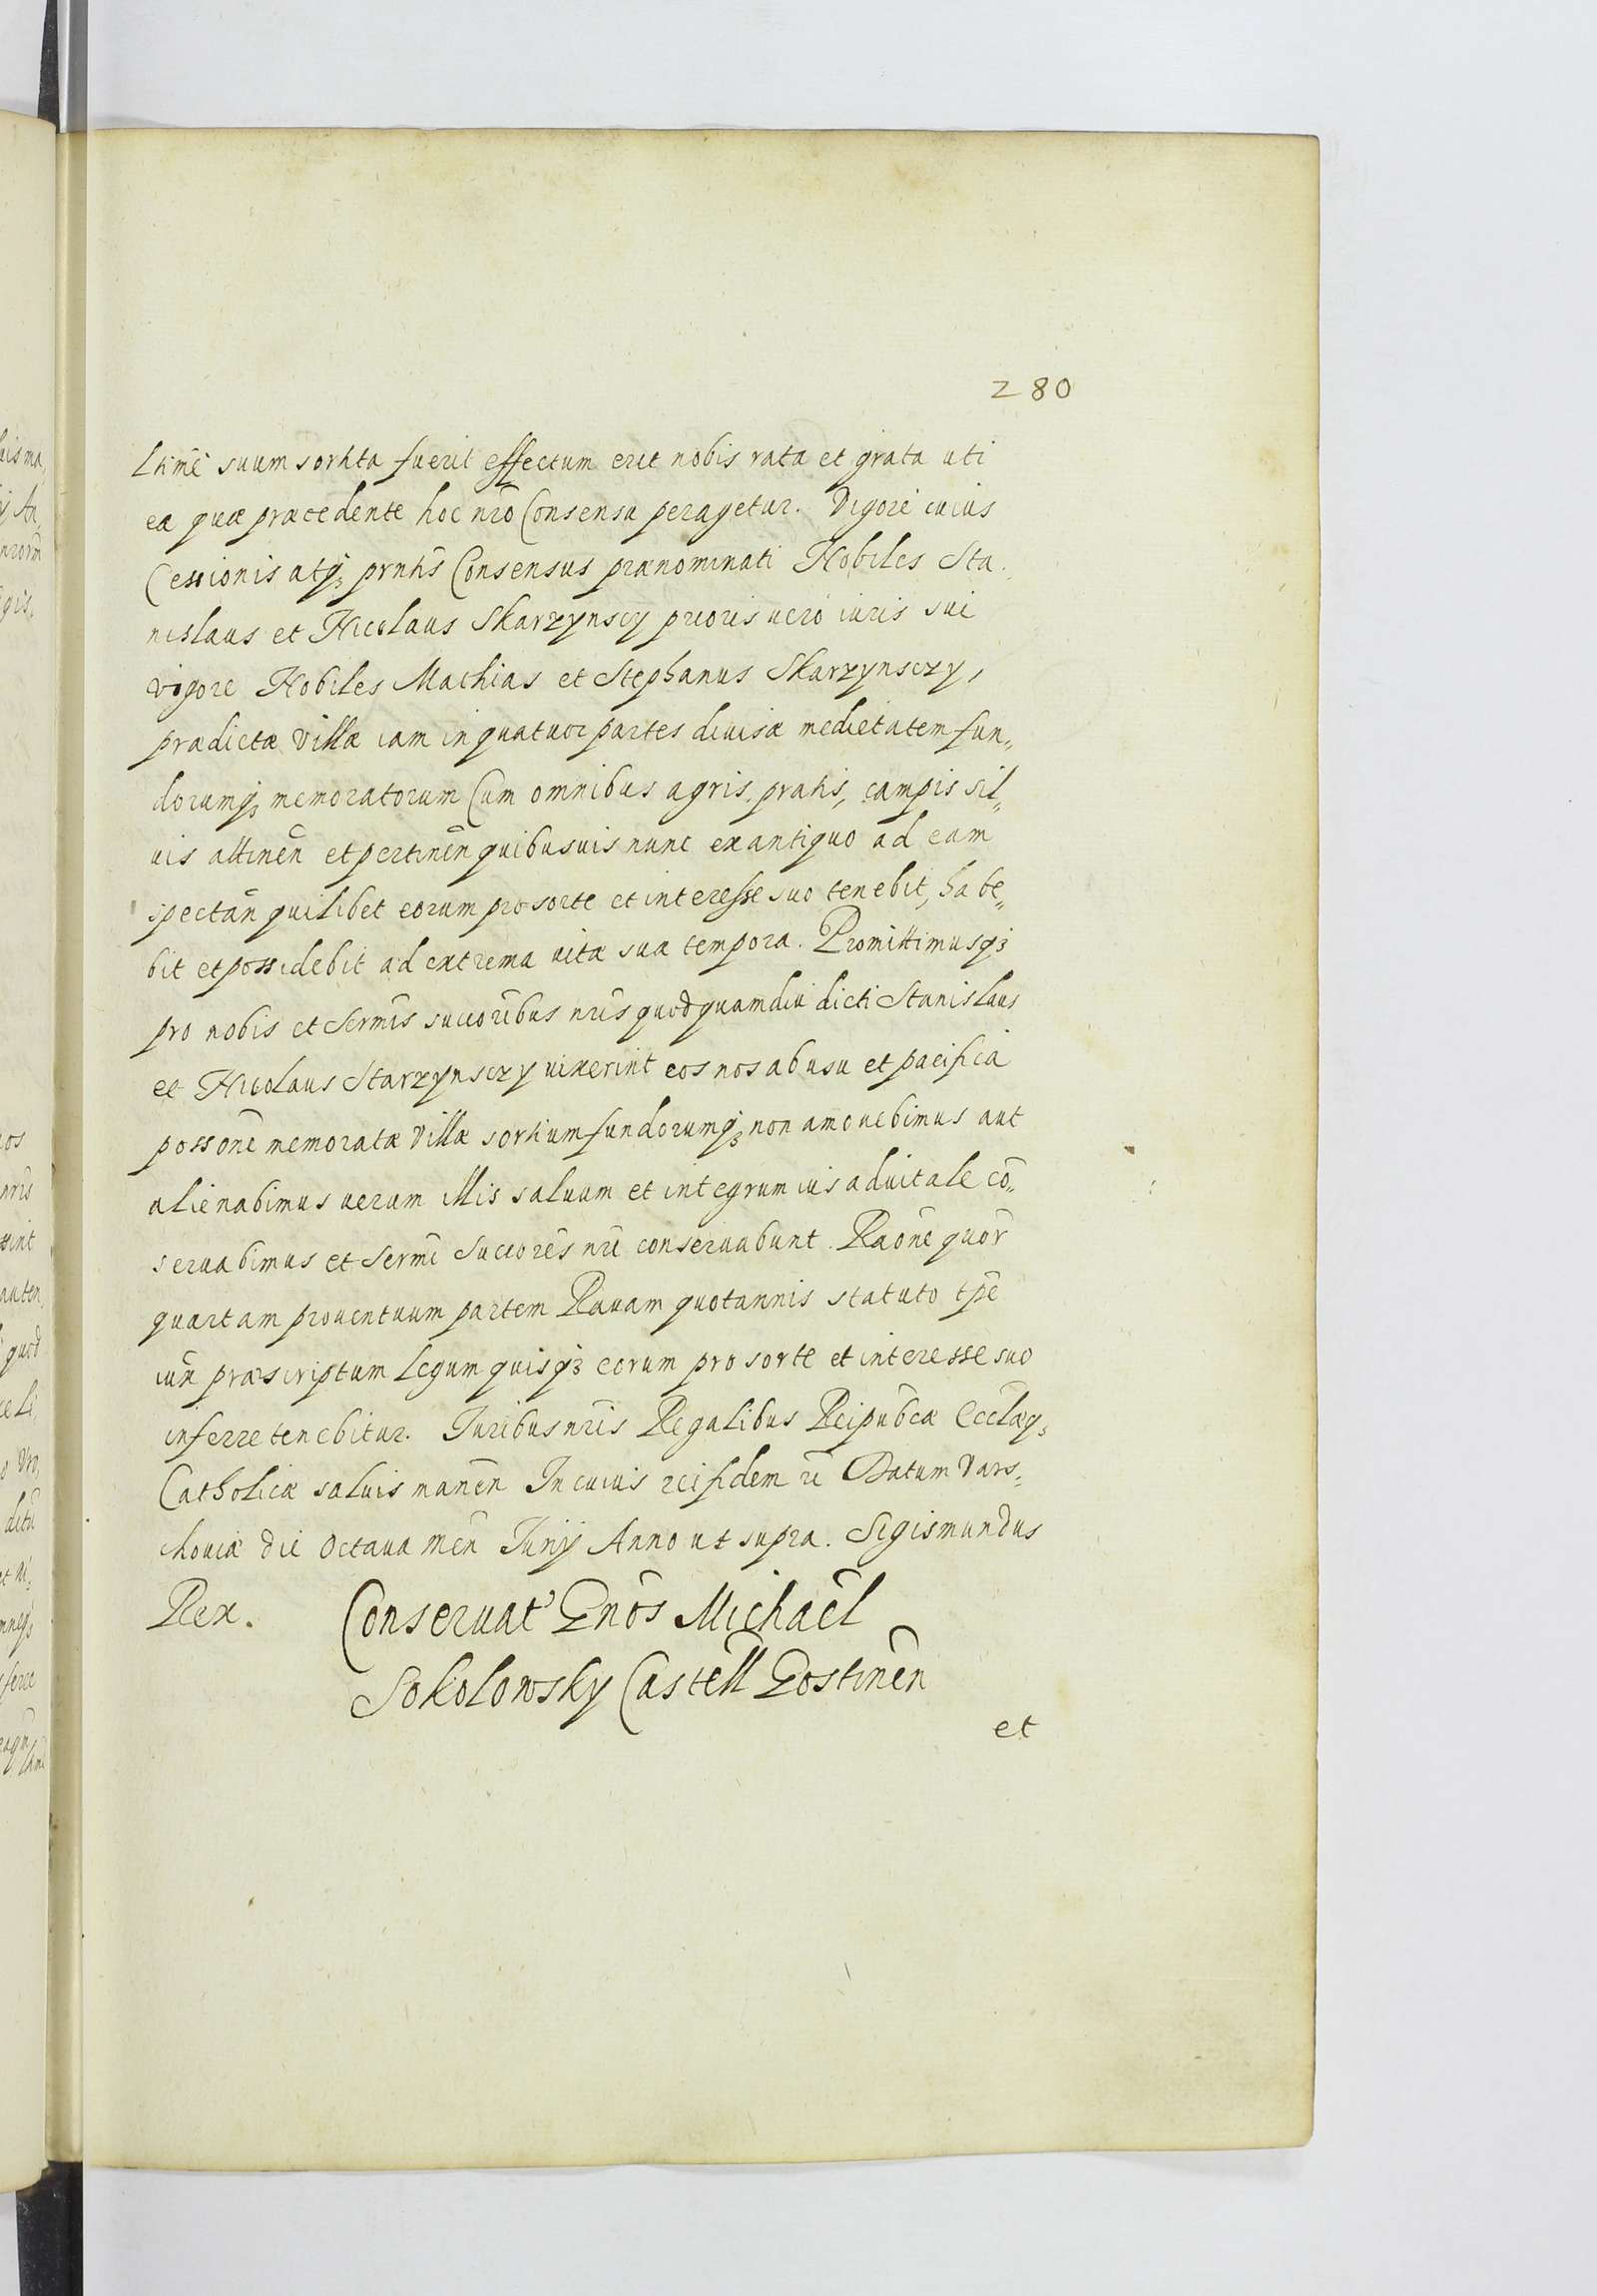 280
Ltimē suum sortita fuerit effectum erit nobis rata et grata uti
ea quæ præcedente hoc nrō Consensu peragetur. Vigore cuius
Cessionis atq; prntis Consensus prænominati Nobiles Sta.
nislaus et Nicolaus Skarzynscy prioris uero iuris sui
vigore Nobiles Mathias et Stephanus Skarzynsczy,
prædictæ Villæ iam in quatuor partes diuisæ medietatem fun„
dorumq; memoratorum Cum omnibus agris, pratis, campis sil„
uis attinēn et pertinēn quibusuis nunc ex antiquo ad eam
spectān quilibet eorum pro sorte et interesse suo tenebit, habe„
bit et possidebit ad extrema uitæ suæ tempora. Promittimusq;
pro nobis et Sermīs succoribus nrīs quod quamdiu dicti Stanislaus
et Nicolaus Starzynsczy uixerint eos nos ab usu et pacifica
possonē memoratæ Villæ sortium fundorumq; non amouebimus aut
alienabimus uerum illis saluum et integrum ius aduitale cō„
seruabimus et Sermī Succorēs nrī conseruabunt. Raōne quor̄
quartam prouentuum partem Rauam quotannis statuto tp̄e
iux præscriptum Legum quisq; eorum pro sorte et interesse suo
inferre tenebitur. Iuribus nrīs Regalibus Reipub̄cæ Ecclæq;
Catholicæ saluis manēn In cuius rei fidem rī Datum Vars„
houiæ die Octaua mēn Iunij Anno ut supra. Sigismundus
Rex. Conseruat' Gnōs Michaēl
Sokolowsky Castēll Gostinēn
et